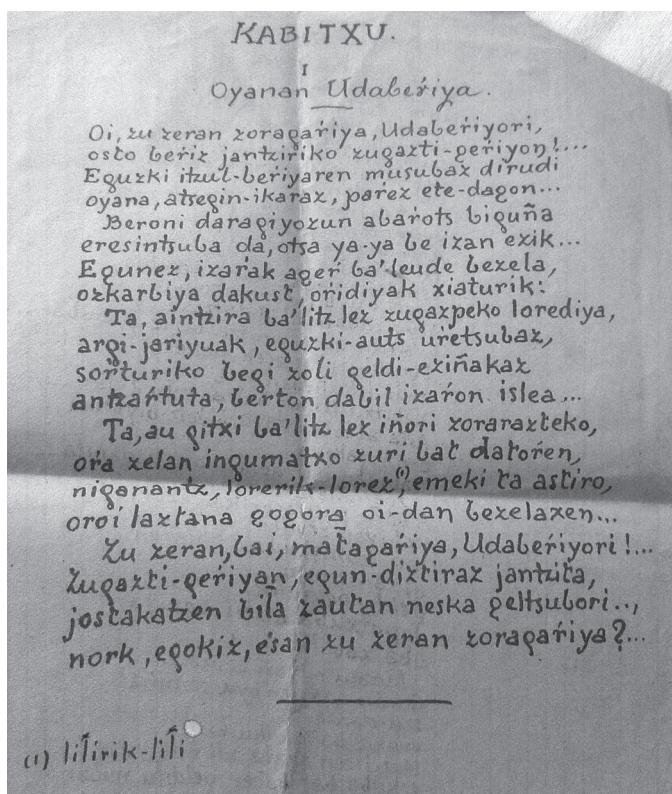 KABITXU.
I
Oyanan Udabeŕiya.
Oi, zu zeran zoragaŕiya, Udabeŕiyori,
osto beŕiz jantziriko zugazti-geŕiyon!...
Eguzki itzul-beŕiyaren musubaz dirudi
oyana, atsegin-ikaraz, paŕez ete-dagon...
Beroni daragiyozun abaŕots biguña
eresintsuba da, otsa ya-ya be izan ezik...
Egunez, izaŕak ageŕ ba'leude bezela,
ozkarbiya dakust, oridiyak xiaturik:
Ta, aintzira ba'litz lez zugazpeko lorediya,
argi-jariyuak, eguzki-auts uŕetsubaz,
soŕturiko begi zoli geldi-eziñakaz
antzaŕtuta, berton dabil izaŕon islea...
Ta, au gitxi ba'litz lez iñori zorarazteko,
oŕa zelan ingumatxo zuri bat datoŕen,
niganantz, lorerik-lorez(1), emeki ta astiro,
oroi laztana gogora oi-dan bezelaxen...
Zu zeran, bai, mat̄agaŕiya, Udabeŕiyori!...
Zugazti-geŕiyan, egun-diztiraz jantzita,
jostakatzen bil̄a zautan neska geltsubori..,
nork, egokiz, eśan zu zeran zoragaŕiya?...
(1) lil̄irik-lil̄i